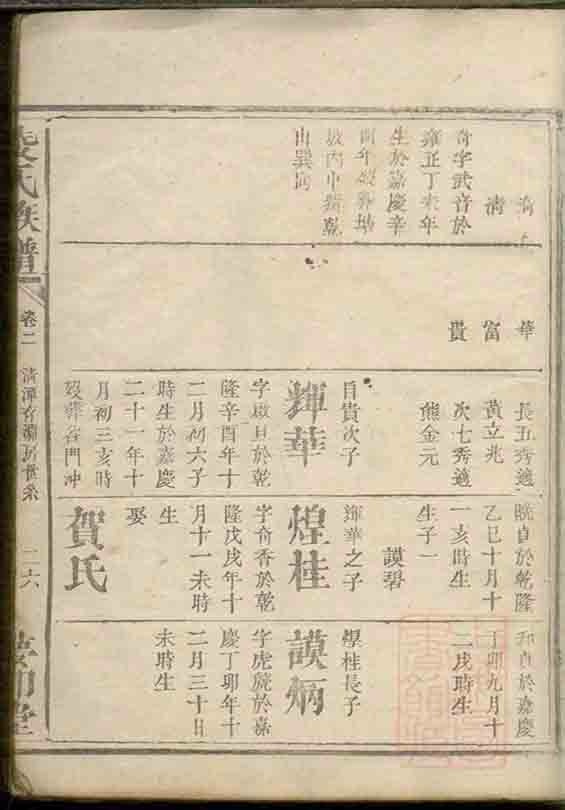 清
奇字武音於
雍正丁未年
生於嘉慶辛
山巽向
華
富
貴
長五秀適
黃立兆
次七秀適
熊金元
自貴次子
輝華
字啟旦於乾
隆辛酉年十
二月初六子
時生於嘉慶
二十一年十
月初三亥時
歿葬谷門沖
乾隆
乙巳十月十
一亥時生
生子一
謨碧
輝華之子
煌桂
字奇香於乾
隆戊戌年十
月十一未時
生
娶
賀氏
於嘉慶
丁卯九月十
二戌時生
學桂長子
謨炳
字虎鹿於嘉
慶丁卯年十
二月三十日
未時生
氏族譜
卷二
二六
堂